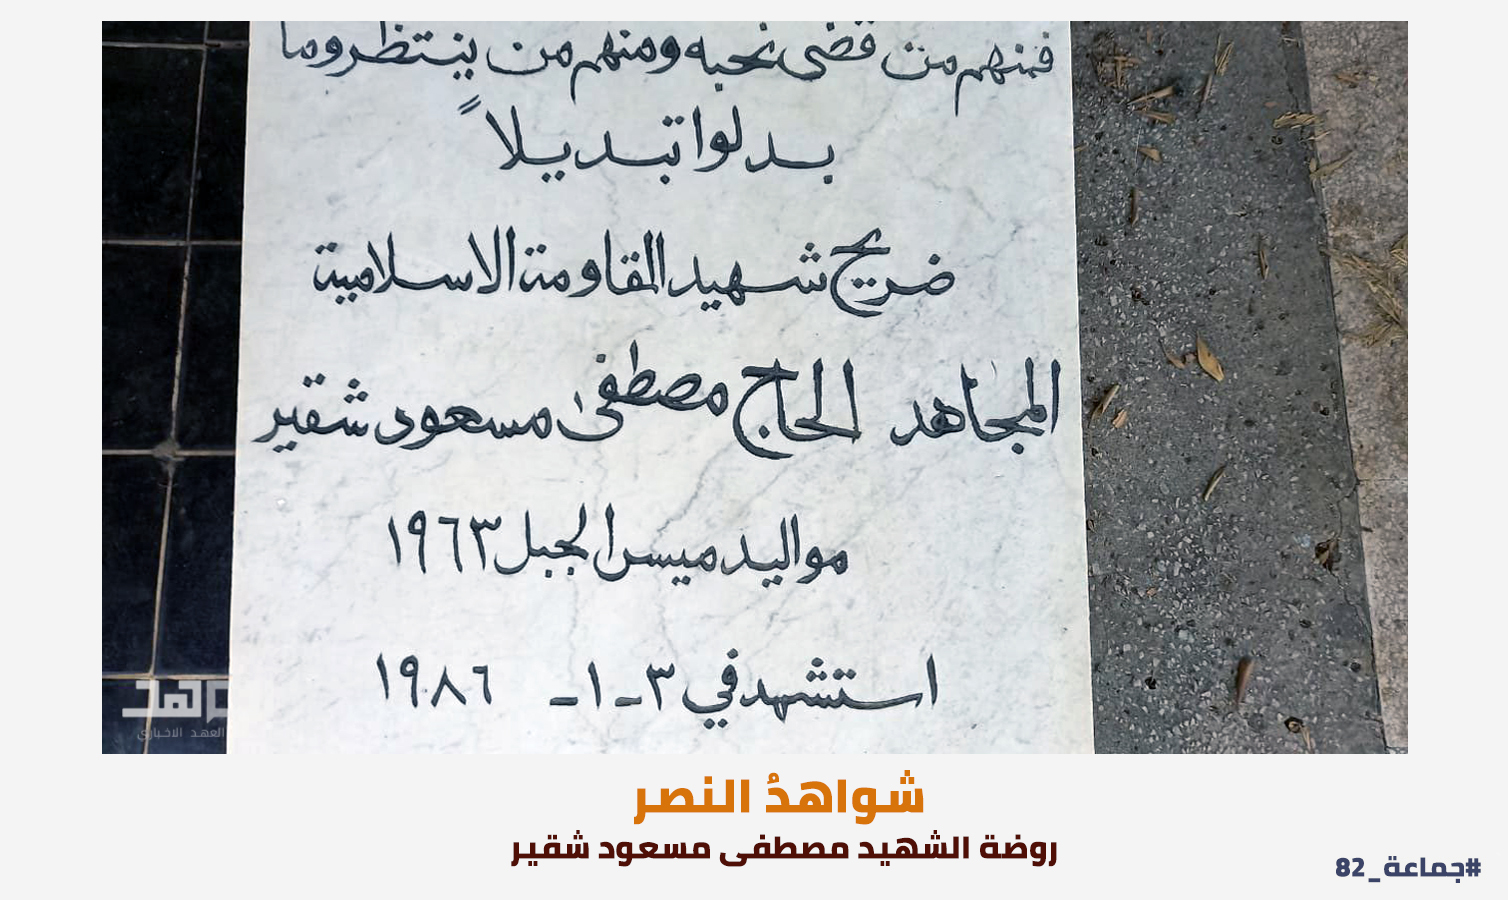 فمنهم من قضى نحبه ومنهم من ينتظر وما
بدلوا تبديلاً
ضريح شهيد المقاومة الاسلامية
المجاهد الحاج مصطفى مسعود شقير
مواليد ميس الجبل ١٩٦٣
استشهد في ٣-١- ١٩٨٦
العهد الاخباري
شواهدُ النصر
روضة الشهيد مصطفى مسعود شقير
#جماعة_82